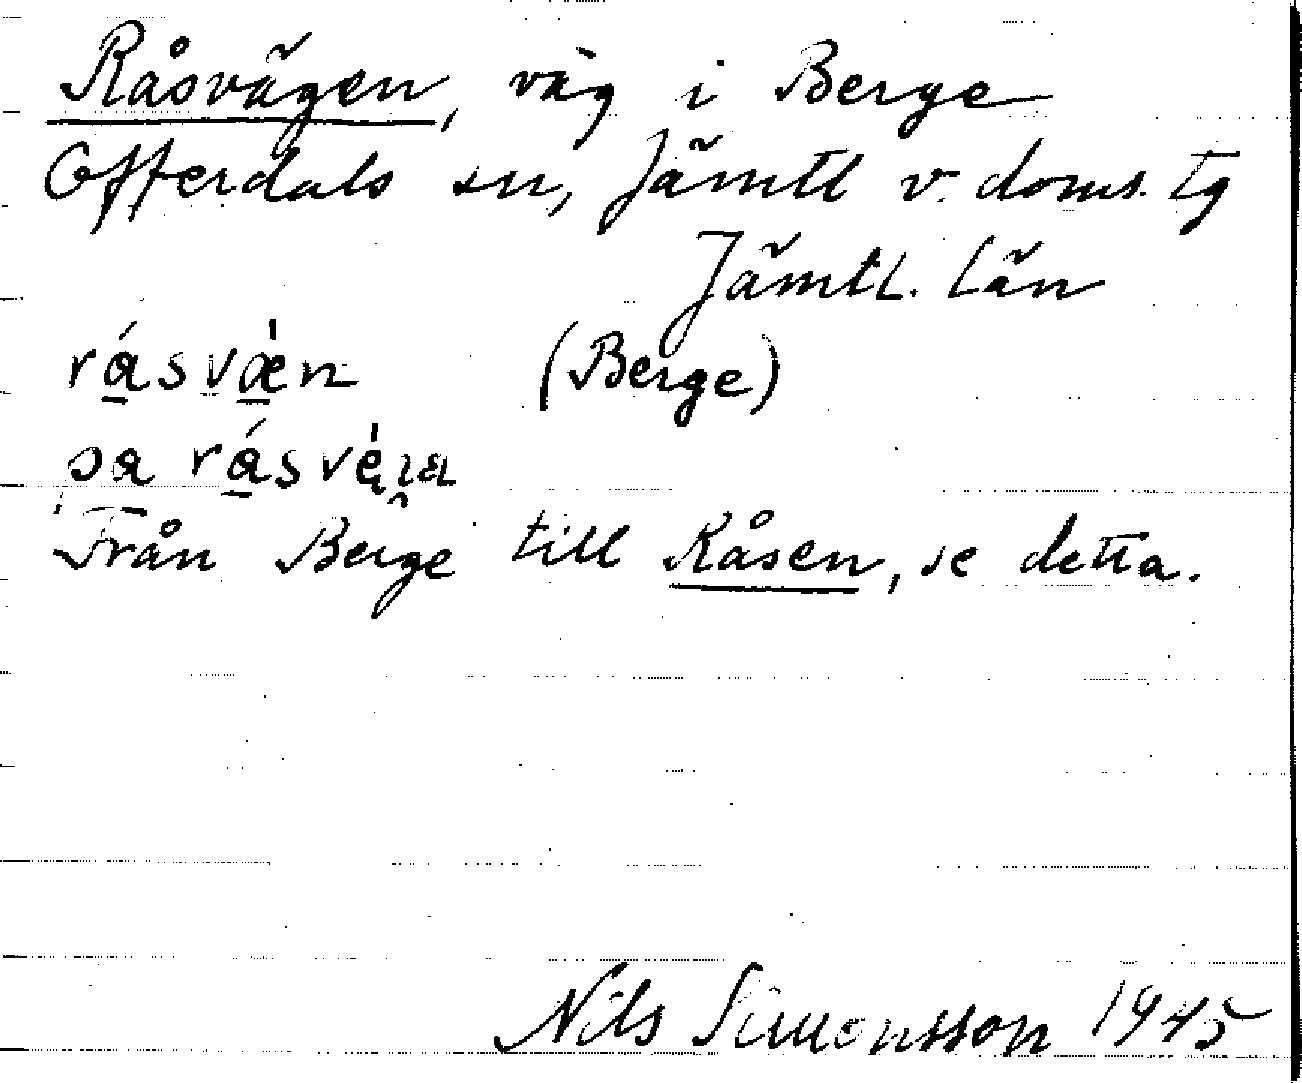 Råsvägen, väg i Berge
Offerdals sn, Jämtl v. doms. tg
Jämtl. län
rásvæ̀n (Berge)
pa rásvèɳa
Från Berge till Råsen, se detta.
Nils Simonsson 1945